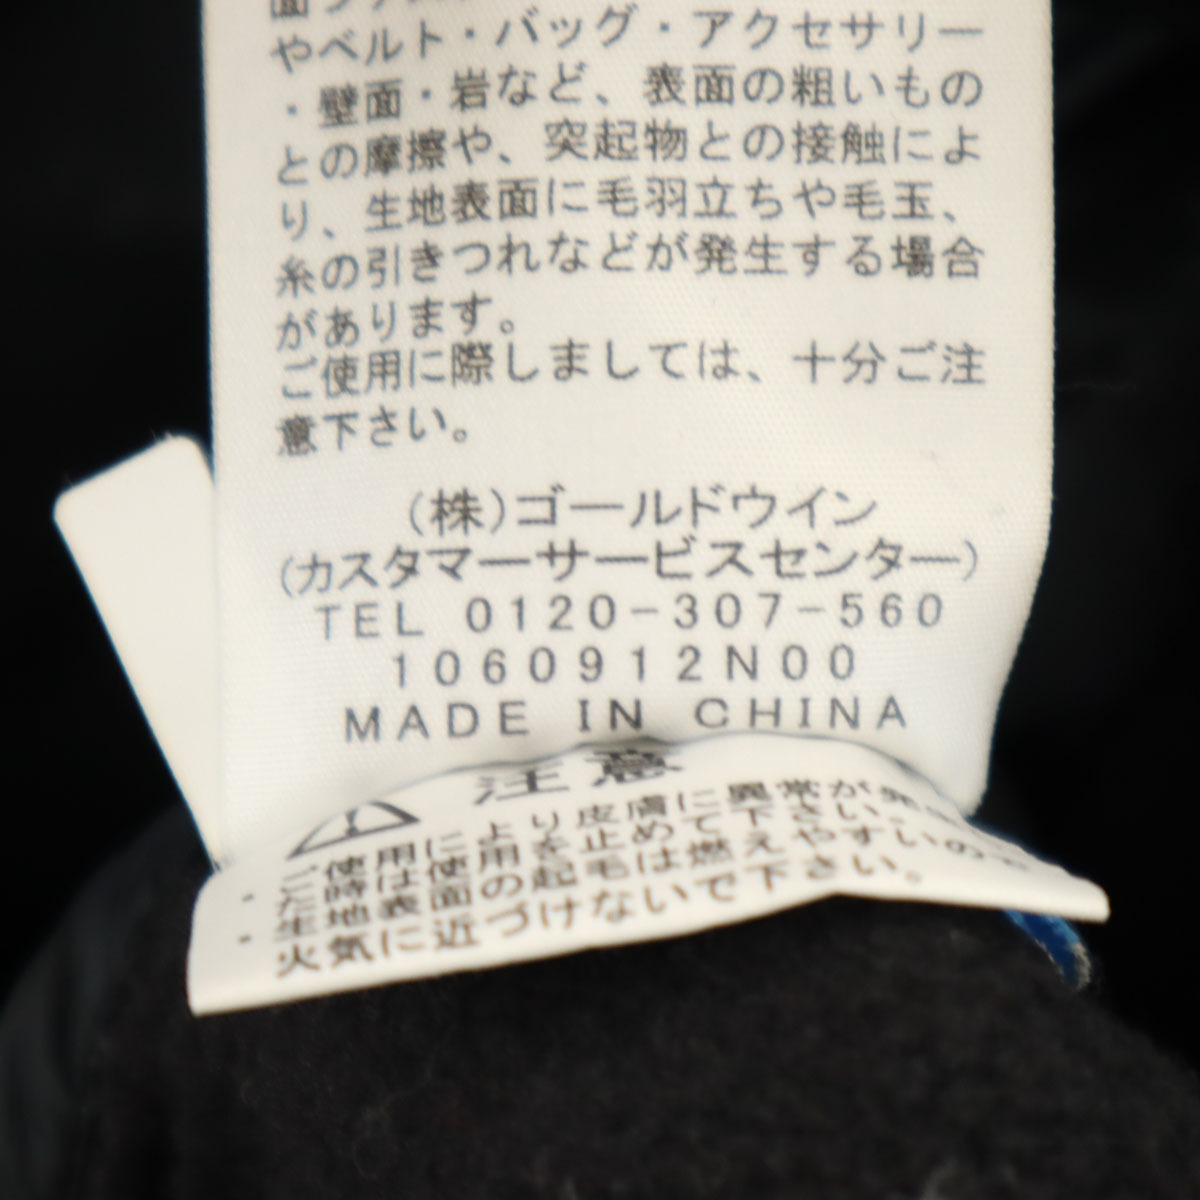 やベルト・バッグ・アクセサリー
・壁面・岩など、表面の粗いもの
との摩擦や、突起物との接触によ
り、生地表面に毛羽立ちや毛玉、
糸の引きつれなどが発生する場合
があります。
ご使用に際しましては、十分ご注
意下さい。
(株)ゴールドウイン
(カスタマーサービスセンター)
TEL 0120-307-560
1060912N00
MADE IN CHINA
注意
・ご使用により皮膚に異常が発生し
た時は使用を止めて下さい。
・生地表面の起毛は燃えやすいので
火気に近づけないで下さい。